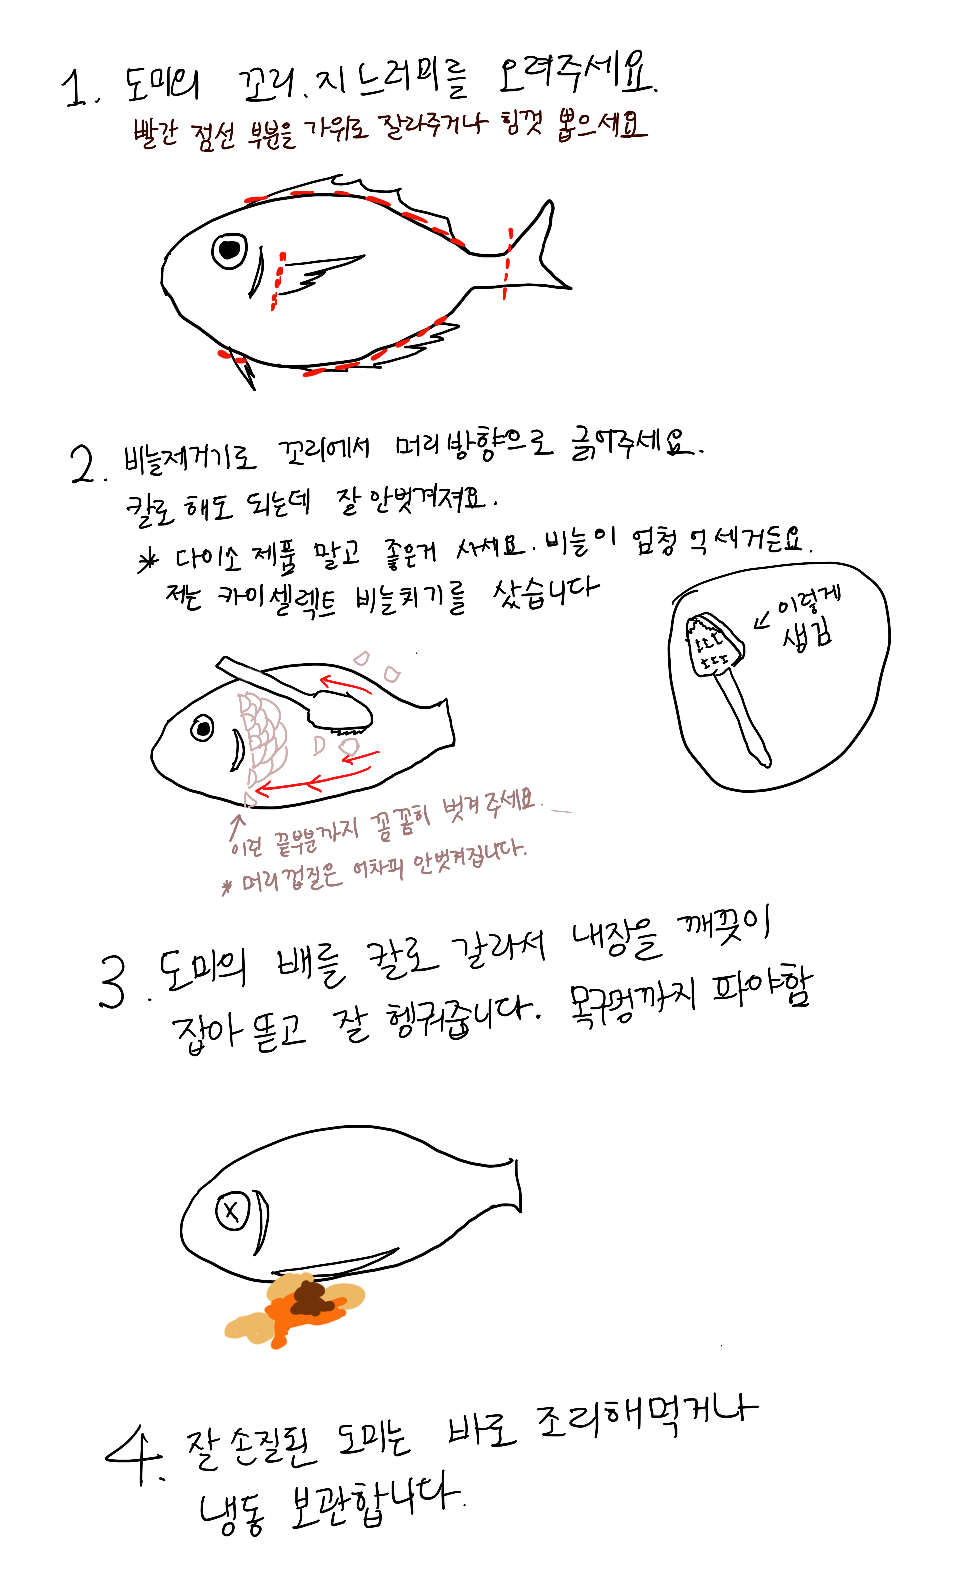 1. 도미의 꼬리.지느러미를 오려주세요.
빨간 점선 부분을 가위로 잘라주거나 힘껏 뽑으세요
2. 비늘제거기로 꼬리에서 머리방향으로 긁어주세요.
칼로 해도 되는데 잘 안벗겨져요.
* 다이소 제품 말고 좋은거 사세요. 비늘이 엄청 억세거든요.
저는 카이셀렉트 비늘치기를 샀습니다
이렇게
생김
이런 끝부분까지 꼼꼼히 벗겨주세요.
* 머리껍질은 어차피 안벗겨집니다.
3. 도미의 배를 칼로 갈라서 내장을 깨끗이
잡아 뜯고 잘 헹궈줍니다. 목구멍까지 파야함
4. 잘 손질된 도미는 바로 조리해먹거나
냉동 보관합니다.